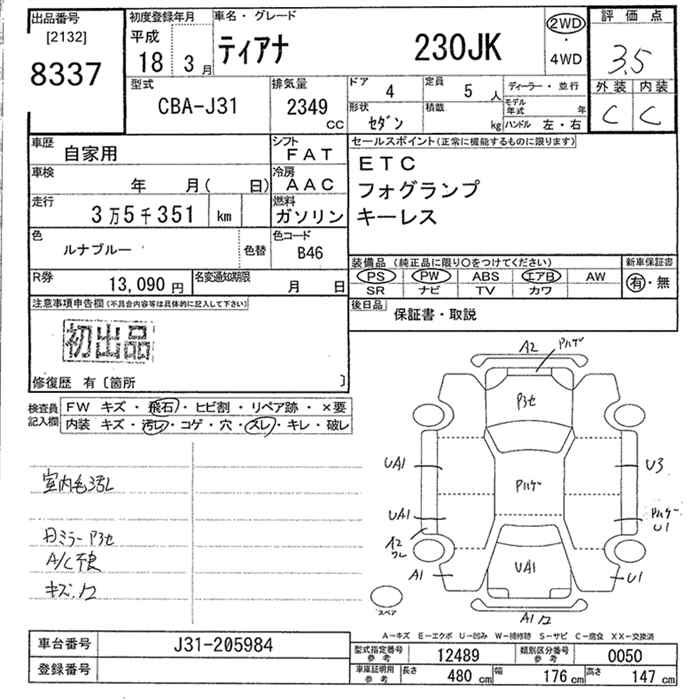 出品番号
[2132]
8337
初度登録年月
平成
18 3 月
車名・グレード
ティアナ 230JK
2WD
・
4WD
評価点
3.5
外装 内装
C C
型式
CBA-J31
排気量
2349
CC
ドア 4
定員 5 人
形状
セダン
積載 kg
ディーラー・並行
モデル年式 年
ハンドル 左・右
車歴
自家用
シフト
FAT
車検
年 月( 日)
冷房
AAC
走行
3万5千351 km
燃料
ガソリン
色
ルナブルー
色替
色コード
B46
R券
13,090 円
名変通知期限
月 日
セールスポイント(正常に機能するものに限ります)
ETC
フォグランプ
キーレス
装備品 (純正品に限り〇をつけてください)
PS PW ABS エアB AW
SR ナビ TV カワ
新車保証書
有・無
後日品
保証書・取説
注意事項申告欄(不具合内容等は具体的に記入して下さい)
初出品
修復歴 有〔箇所 〕
検査員
記入欄
FW キズ・飛石・ヒビ割・リペア跡・×要
内装 キズ・汚レ・コゲ・穴・スレ・キレ・破レ
A2
Pハゲ
P3セ
UA1
U3
Pハゲ
UA1
Pハゲ
U1
A2
ワレ
UA1
A1
U1
スペア
A1
室内毛汚レ
P3セ
A/C不良
キズ
A-キズ E-エクボ U-凹み W-補修跡 S-サビ C-腐食 XX-交換済
車台番号
J31-205984
登録番号
型式指定番号
参考
12489
類別区分番号
参考
0050
車庫証明用
参考
長さ 480 cm
幅 176 cm
高さ 147 cm